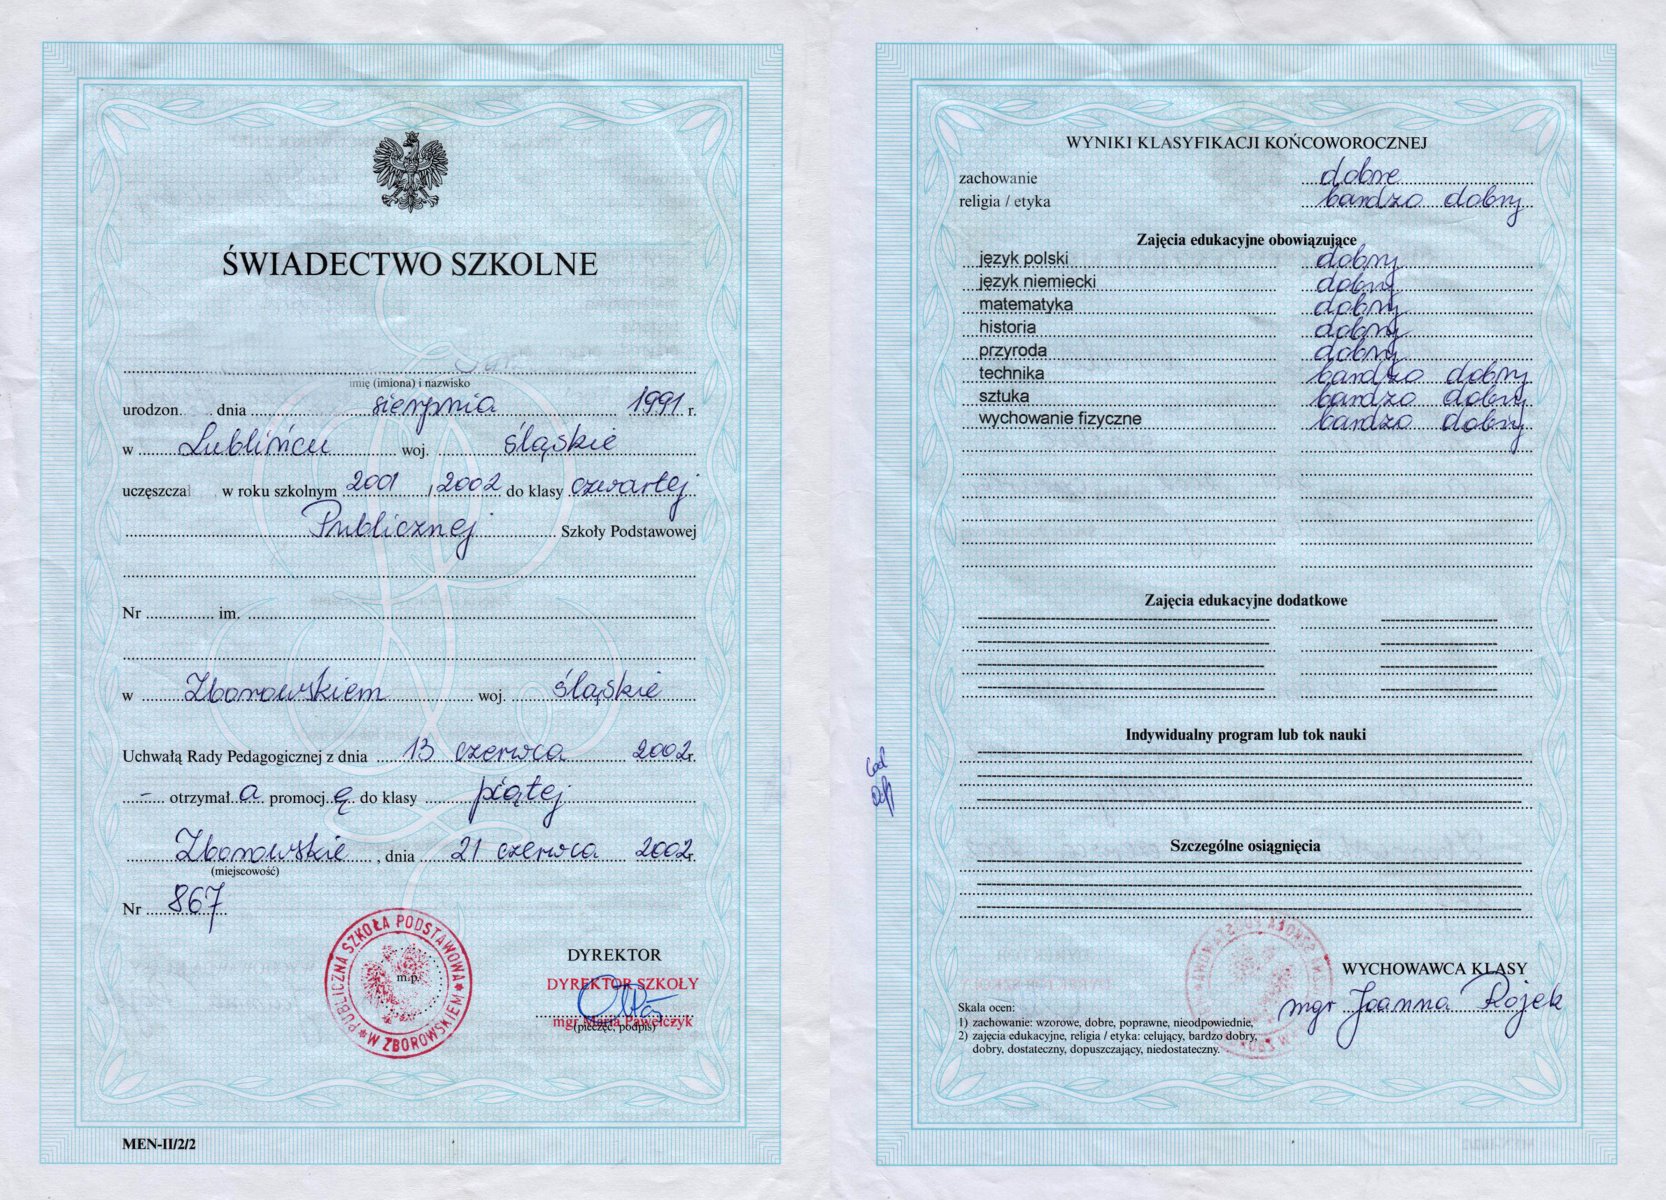 ŚWIADECTWO SZKOLNE
imię (imiona) i nazwisko
urodzon. dnia sierpnia 1991 r.
w Lublińcu woj. śląskie
uczęszczał w roku szkolnym 2001 / 2002 do klasy czwartej
Publicznej Szkoły Podstawowej
Nr im.
w Zborowskiem woj. śląskie
Uchwałą Rady Pedagogicznej z dnia 13 czerwca 2002 r.
- otrzymał a promocj ę do klasy piątej
Zborowskie , dnia 21 czerwca 2002 r.
(miejscowość)
Nr 867
PUBLICZNA SZKOŁA PODSTAWOWA
W ZBOROWSKIEM
m.p.
DYREKTOR
DYREKTOR SZKOŁY
mgr Maria Pawełczyk
(pieczęć, podpis)
MEN-II/2/2
WYNIKI KLASYFIKACJI KOŃCOWOROCZNEJ
zachowanie dobre
religia / etyka bardzo dobry
Zajęcia edukacyjne obowiązujące
język polski dobry
język niemiecki dobry
matematyka dobry
historia dobry
przyroda dobry
technika bardzo dobry
sztuka bardzo dobry
wychowanie fizyczne bardzo dobry
Zajęcia edukacyjne dodatkowe
Indywidualny program lub tok nauki
Szczególne osiągnięcia
WYCHOWAWCA KLASY
mgr Joanna Rojek
Skala ocen:
1) zachowanie: wzorowe, dobre, poprawne, nieodpowiednie,
2) zajęcia edukacyjne, religia / etyka: celujący, bardzo dobry,
dobry, dostateczny, dopuszczający, niedostateczny.